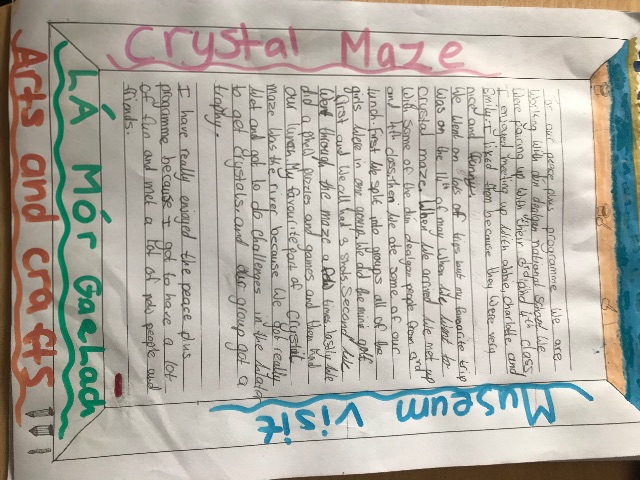 Crystal Maze
LÁ MÓR Gaelach
Arts and crafts
Museum visit
For our peace plus programme We are
Working with dún dealgan national school. We
Were pairing up with their 3rd and 4th class
I enjoyed meeting up with abbie, charlotte and
Emily. I liked them because they were very
nice and funny.
We went on lots of trips but my favourite trip
was on the 11th of may when we went to
Crystal maze. When we arrived we met up
with some of the dún dealgan people from 3rd
and 4th class. then we ate some of our
lunch. First we split into groups all of the
girls were in one group. We did the mini golf
first and we all had 3 shots. Second we
Went through the maze a time. lastly we
did a puzzles and games and then had
our lunch. My favourite part of Crystal
maze was the river because We got really
Wet and got to do challenges in the Watar
to get crystals. and our group got a
trophy.
I have really enjoyed the peace plus
programme because I got to have a lot
of fun and met a lot of new people and
friends.